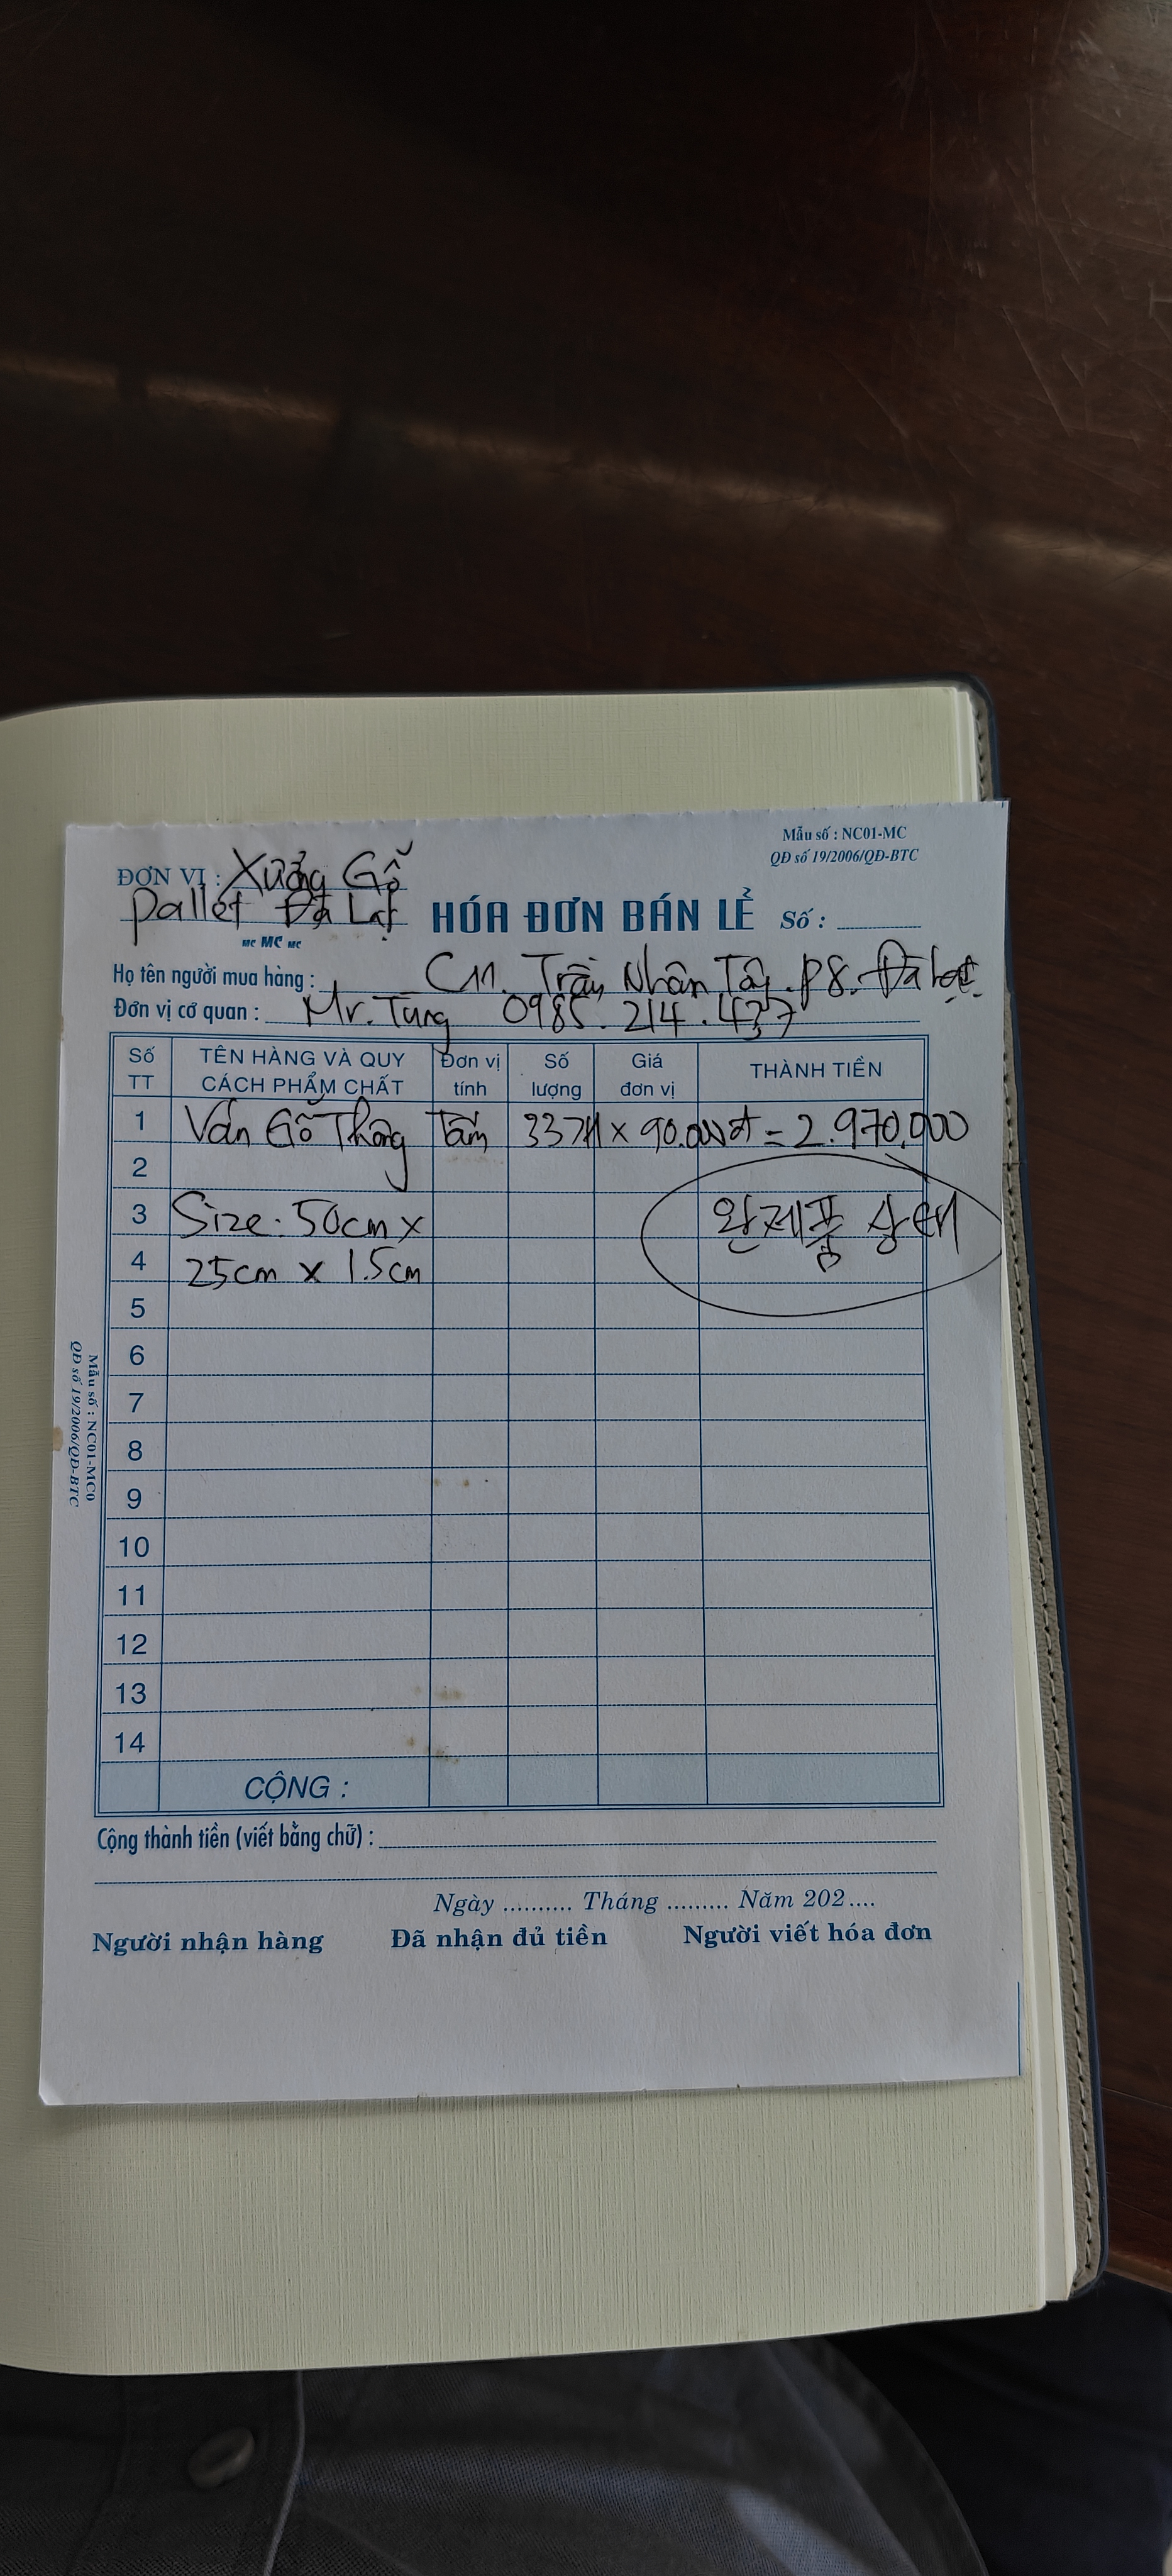 Mẫu số : NC01-MC
QĐ số 19/2006/QĐ-BTC
ĐƠN VỊ : Xưởng Gỗ
pallet Đà Lạt
HÓA ĐƠN BÁN LẺ Số :
MC MC MC
Họ tên người mua hàng : C11. Trần Nhân Tông. P8. Đà Lạt.
Đơn vị cơ quan : Mr. Tung 0985.214.437
Số TT TÊN HÀNG VÀ QUY CÁCH PHẨM CHẤT Đơn vị tính Số lượng Giá đơn vị THÀNH TIỀN
1 Ván Gỗ Thông Tấm 33개 x 90.000đ = 2.970.000
2
3 Size: 50cm x 완제품 상태
4 25cm x 1.5cm
5
6
7
8
9
10
11
12
13
14
CỘNG :
Cộng thành tiền (viết bằng chữ) :
Ngày .......... Tháng ......... Năm 202....
Người nhận hàng Đã nhận đủ tiền Người viết hóa đơn
Mẫu số : NC01-MC0
QĐ số 19/2006/QĐ-BTC